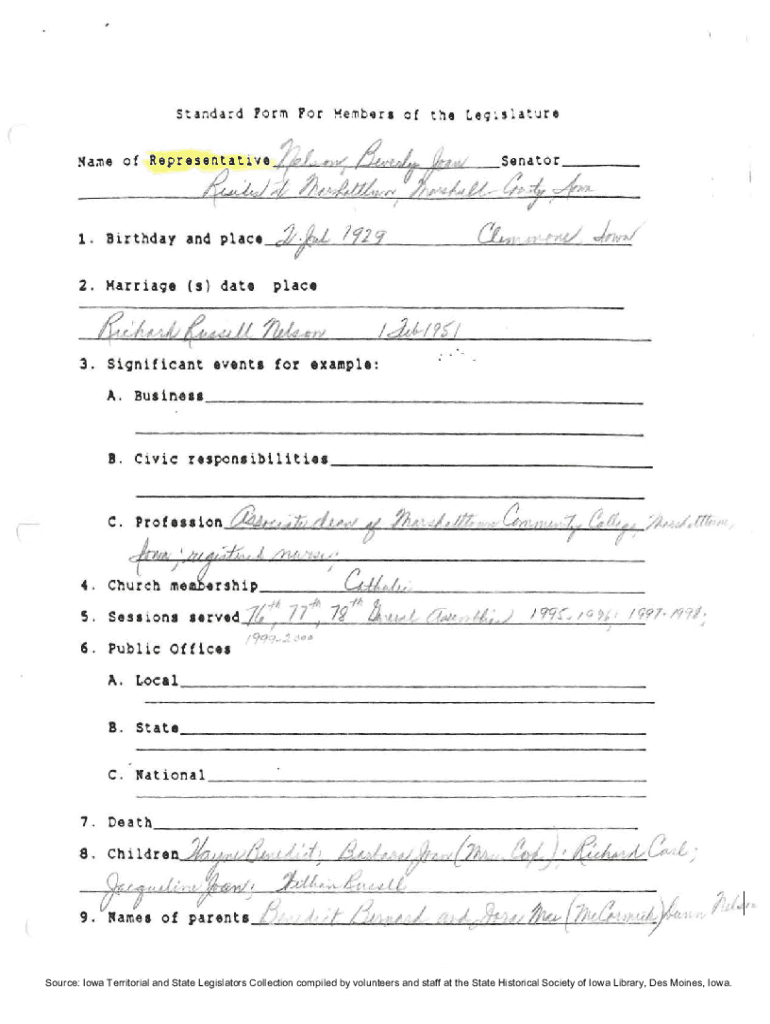 Standard Form For Members of the Legislature
Name of Representative Nelson, Beverly Joan Senator
Resident of Marshalltown, Marshall County, Iowa
1. Birthday and place 2 Jul 1929 Clemmons, Iowa
2. Marriage (s) date place
Richard Russell Nelson 1 Feb 1951
3. Significant events for example:
A. Business
B. Civic responsibilities
C. Profession Associate dean of Marshalltown Community College, Marshalltown,
Iowa; registered nurse;
4. Church membership Catholic
5. Sessions served 76th, 77th, 78th General Assemblies 1995-1996; 1997-1998;
1999-2000
6. Public Offices
A. Local
B. State
C. National
7. Death
8. Children Wayne Benedict; Barbara Joan (Mrs. Cox); Richard Carl;
Jacqueline Joan; Russell
9. Names of parents Benedict Bernard and Dora Mae (McCormick) Nelson
Source: Iowa Territorial and State Legislators Collection compiled by volunteers and staff at the State Historical Society of Iowa Library, Des Moines, Iowa.